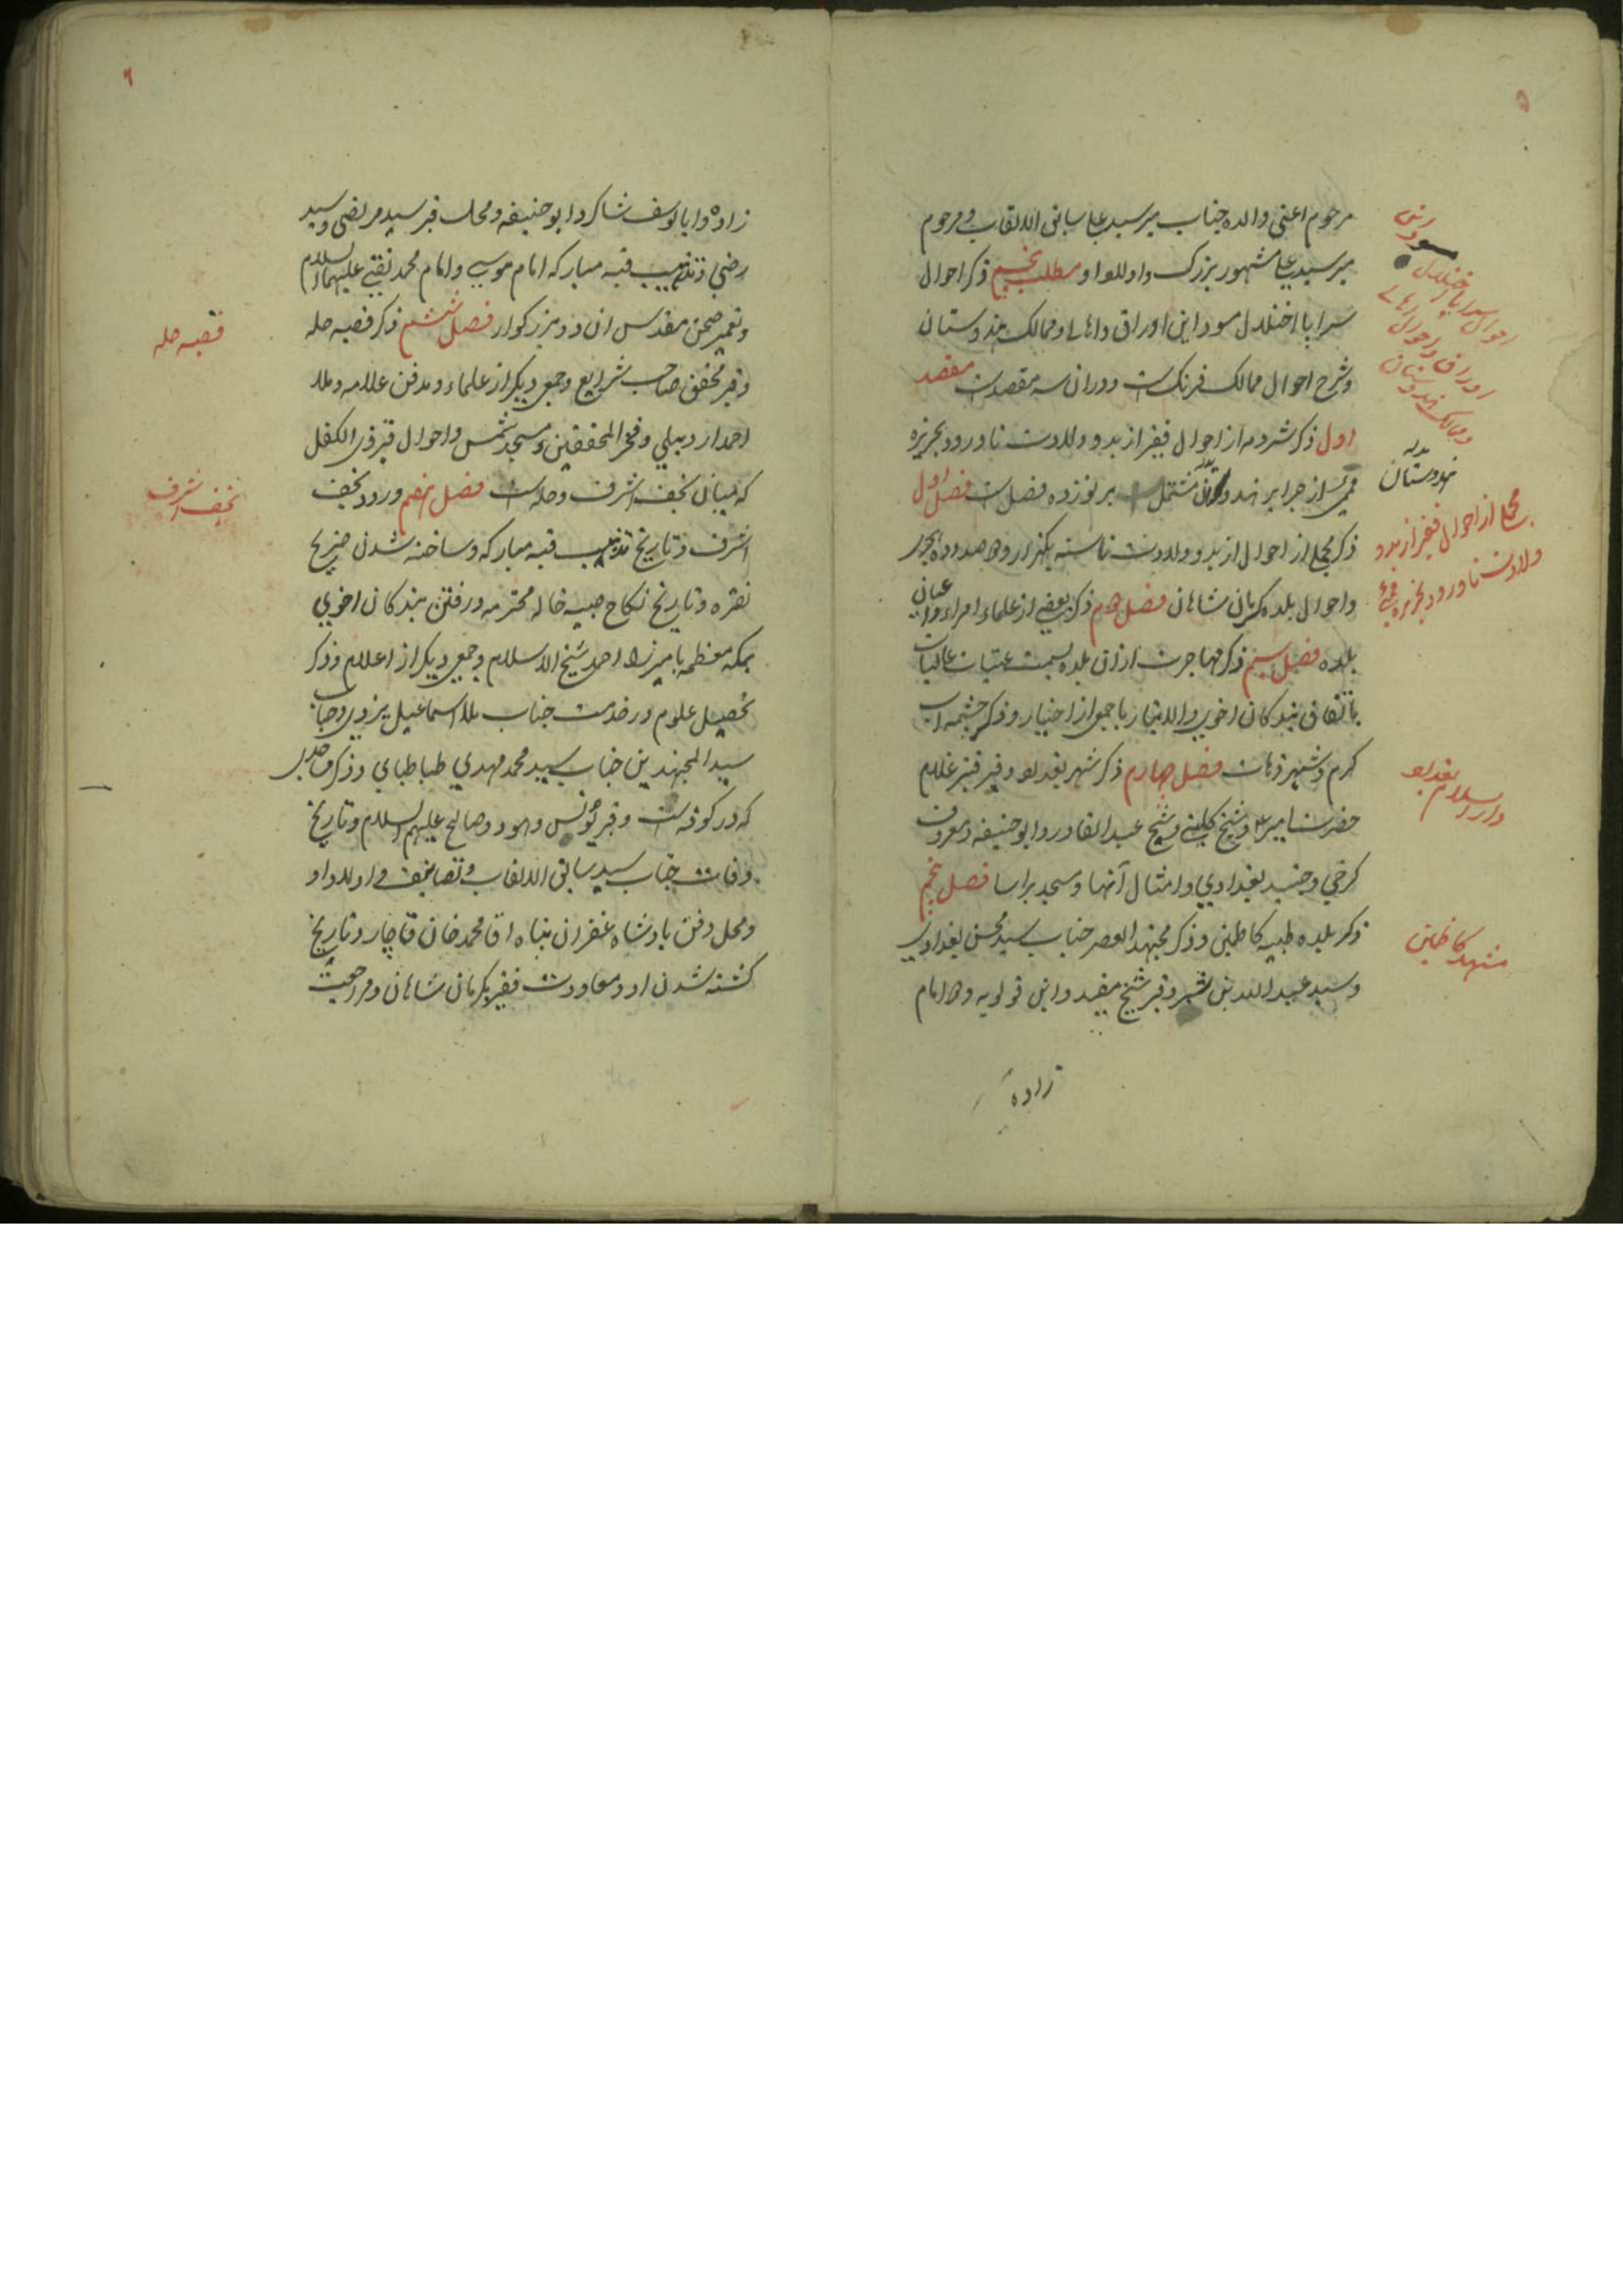 ۵
مرحوم اعنی والده جناب میر سید علی سابق الالقاب و مرحوم
میر سید علی مشهور ببزرگ و اولاد او مطلب پنجم ذکر احوال
سراپا اختلال مسود این اوراق و اهالی و ممالک هندوستان
و شرح احوال ممالک فرنک است و در ان سه مقصد است مقصد
اول ذکر شرذمه از احوال فقیر از بدو ولادت تا ورود بجزیره
ممبئی از جزایر هندوستان مشتمل بر نوزده فصل است فصل اول
ذکر مجملی از احوال از بدو ولادت تا سنه یکهزار و دو صد و ده هجری
و احوال بلده کرمان شاهان فصل دوم ذکر بعضی از علماء امراء و اعیان
بلده فصل سیم ذکر مهاجرت از ان بلده بسمت عتبات عالیات
باتفاق بندکان اخوی والاتبار با جمعی از اخیار و ذکر چشمه اب
کرم و شهر زهاب فصل چهارم ذکر شهر بغداد و قبر قنبر غلام
حضرت امیر ع و شیخ کلینی و شیخ عبدالقادر و ابو حنیفه و معروف
کرخی و جنید بغدادی و امثال آنها و مسجد براسا فصل پنجم
ذکر بلده طیبه کاظمین و ذکر مجتهد العصر جناب سید محسن بغدادی
و سید عبدالله بن شبر و قبر شیخ مفید و ابن قولویه و دو امام
زاده
احوال سراپا اختلال
اوراق و احوال اهالی
و ممالک هندوستان
هندوستان
مجملی از احوال فقیر از بدو
ولادت تا ورود بجزیره ممبئی
دار السلام بغداد
مشهد کاظمین
۶
زاده و ابا یوسف شاکرد ابو حنیفه و محل قبر سید مرتضی و سید
رضی و تذهیب قبه مبارکه امام موسی و امام محمد تقی علیهما السلام
و تعمیر صحن مقدس ان دو بزرکوار فصل ششم ذکر قصبه حله
و قبر محقق صاحب شرایع و جمعی دیکر از علماء و مدفن علامه و ملا
احمد اردبیلی و فخر المحققین و مسجد شمس و احوال قبر ذی الکفل
که میان نجف اشرف و حله است فصل هفتم ورود نجف
اشرف و تاریخ تذهیب قبه مبارکه و ساخته شدن ضریح
نقره و تاریخ نکاح صبیه خاله محترمه و رفتن بندکان اخوی
بمکه معظمه با میرزا احمد شیخ الاسلام و جمعی دیکر از اعلام و ذکر
تحصیل علوم در خدمت جناب ملا اسماعیل یزدی و جناب
سید المجتهدین جناب سید محمد مهدی طباطبایی و ذکر محلی
که در کوفه است و قبر یونس و هود و صالح علیهم السلام و تاریخ
وفات جناب سید سابق الالقاب و تصانیف و اولاد او
و محل دفن بادشاه غفران پناه اقا محمد خان قاچار و تاریخ
کشته شدن او و معاودت فقیر بکرمان شاهان و مراجعت
قصبه حله
نجف اشرف